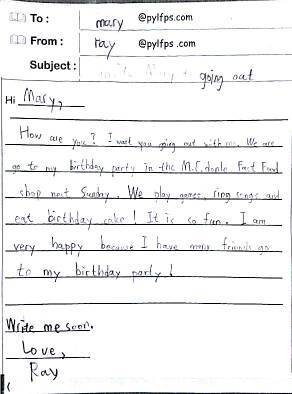 To : mary @pylfps.com
From : ray @pylfps.com
Subject : going out
Hi Mary,
How are you? I want you going out with me. We are
go to my birthday party in the M.C donle Fast Food
shop next Sunday. We play games, sing songs and
eat birthday cake! It is so fun. I am
very happy because I have many friends go
to my birthday party!
Write me soon.
Love,
Ray